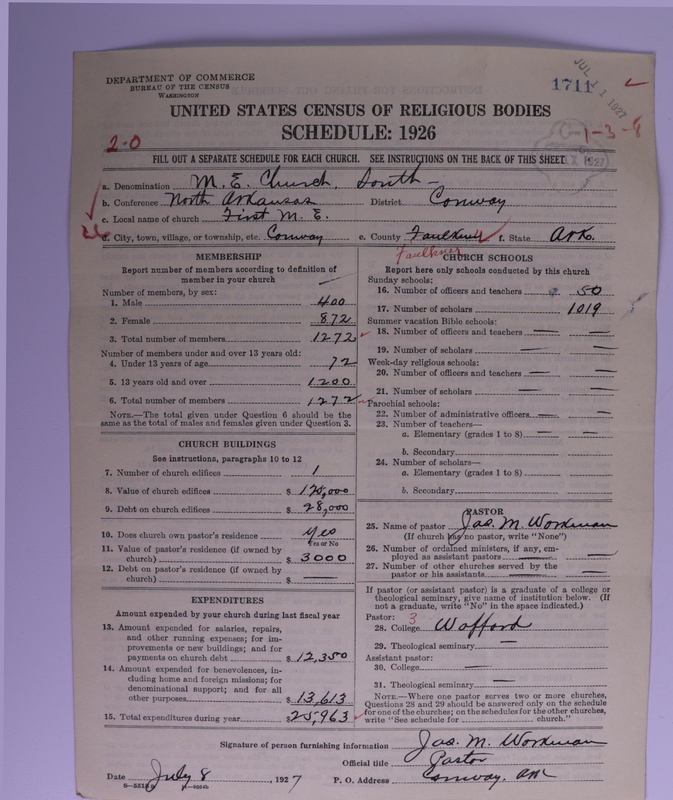 DEPARTMENT OF COMMERCE
BUREAU OF THE CENSUS
WASHINGTON
JUL 11 1927
1711
UNITED STATES CENSUS OF RELIGIOUS BODIES
SCHEDULE: 1926
2-0
1-3-8
1927
FILL OUT A SEPARATE SCHEDULE FOR EACH CHURCH. SEE INSTRUCTIONS ON THE BACK OF THIS SHEET
a. Denomination M. E. Church, South-
b. Conference North Arkansas District Conway
c. Local name of church First M. E.
d. City, town, village, or township, etc. Conway e. County Faulkner f. State Ark.
Faulkner
MEMBERSHIP
Report number of members according to definition of
member in your church
Number of members, by sex:
1. Male 400
2. Female 872
3. Total number of members 1272
Number of members under and over 13 years old:
4. Under 13 years of age 72
5. 13 years old and over 1200
6. Total number of members 1272
NOTE.—The total given under Question 6 should be the
same as the total of males and females given under Question 3.
CHURCH BUILDINGS
See instructions, paragraphs 10 to 12
7. Number of church edifices 1
8. Value of church edifices $ 175,000
9. Debt on church edifices $ 28,000
10. Does church own pastor's residence yes
Yes or No
11. Value of pastor's residence (if owned by
church) $ 3000
12. Debt on pastor's residence (if owned by
church) $ —
EXPENDITURES
Amount expended by your church during last fiscal year
13. Amount expended for salaries, repairs,
and other running expenses; for im-
provements or new buildings; and for
payments on church debt $ 12,350
14. Amount expended for benevolences, in-
cluding home and foreign missions; for
denominational support; and for all
other purposes $ 13,613
15. Total expenditures during year $ 25,963
CHURCH SCHOOLS
Report here only schools conducted by this church
Sunday schools:
16. Number of officers and teachers 50
17. Number of scholars 1019
Summer vacation Bible schools:
18. Number of officers and teachers —
19. Number of scholars —
Week-day religious schools:
20. Number of officers and teachers —
21. Number of scholars —
Parochial schools:
22. Number of administrative officers —
23. Number of teachers—
a. Elementary (grades 1 to 8) —
b. Secondary —
24. Number of scholars—
a. Elementary (grades 1 to 8) —
b. Secondary —
PASTOR
25. Name of pastor Jas. M. Workman
(If church has no pastor, write "None")
26. Number of ordained ministers, if any, em-
ployed as assistant pastors —
27. Number of other churches served by the
pastor or his assistants —
If pastor (or assistant pastor) is a graduate of a college or
theological seminary, give name of institution below. (If
not a graduate, write "No" in the space indicated.)
Pastor: 3
28. College Wofford
29. Theological seminary —
Assistant pastor:
30. College —
31. Theological seminary —
NOTE.—Where one pastor serves two or more churches,
Questions 28 and 29 should be answered only on the schedule
for one of the churches; on the schedules for the other churches,
write "See schedule for church."
Signature of person furnishing information Jas. M. Workman
Official title Pastor
Date July 8, 1927 P. O. Address Conway, Ark